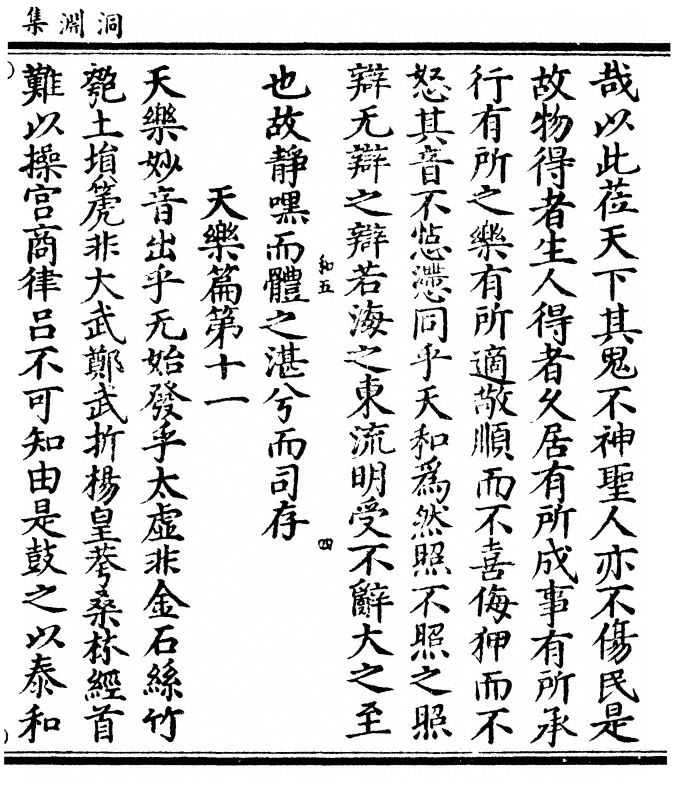 洞淵集
哉以此莅天下其鬼不神聖人亦不傷民是
故物得者生人得者久居有所成事有所承
行有所之樂有所適敬順而不喜侮狎而不
怒其音不怗懘同乎天和爲然照不照之照
辯无辯之辯若海之東流明受不辭大之至
也故靜嘿而體之湛兮而司存
和五
四
天樂篇第十一
天樂妙音出乎无始發乎太虛非金石絲竹
匏土塤篪非大武鄭武折楊皇荂桑林經首
難以操宮商律吕不可知由是鼓之以泰和